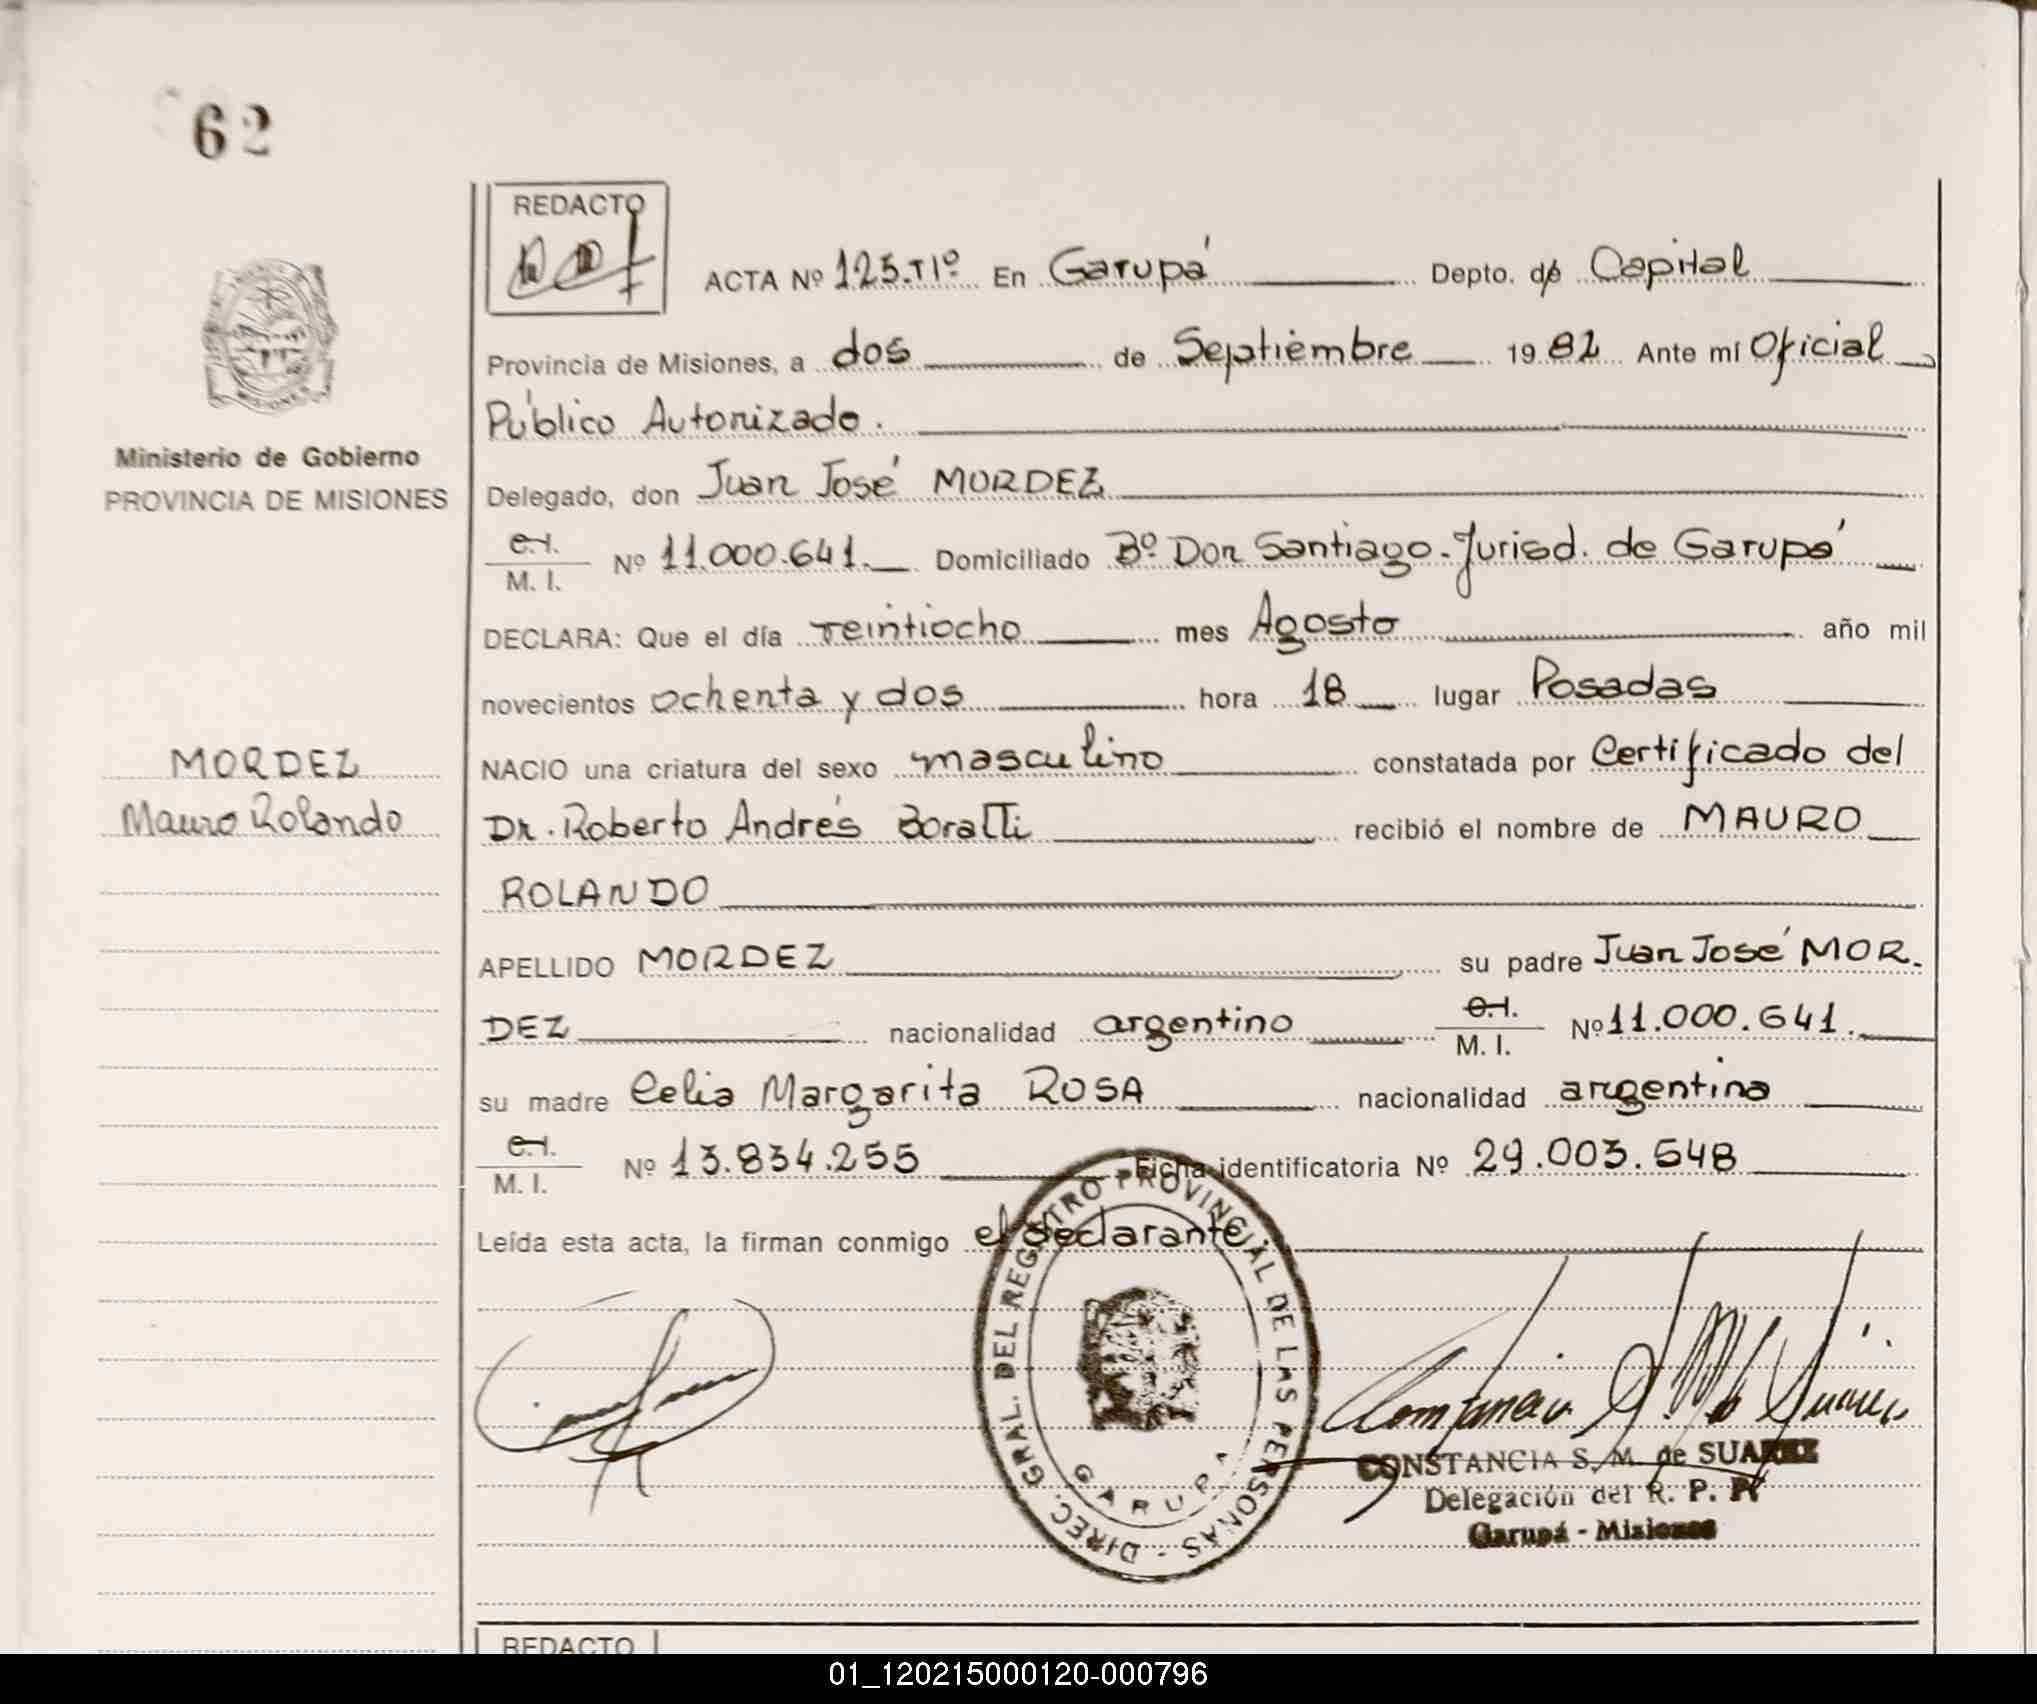 62
REDACTO
ACTA Nº 125.TIº En Garupá Depto. de Capital
Provincia de Misiones, a dos de Septiembre 1982 Ante mí Oficial
Público Autorizado.
Ministerio de Gobierno
PROVINCIA DE MISIONES
Delegado, don Juan José MORDEZ
C.I.
M. I. Nº 11.000.641. Domiciliado Bº Don Santiago-Jurisd. de Garupá
DECLARA: Que el día veintiocho mes Agosto año mil
novecientos ochenta y dos hora 18 lugar Posadas
MORDEZ
Mauro Rolando
NACIO una criatura del sexo masculino constatada por Certificado del
Dr. Roberto Andrés Boratti recibió el nombre de MAURO
ROLANDO
APELLIDO MORDEZ su padre Juan José MOR-
DEZ nacionalidad argentino C.I.
M. I. Nº 11.000.641.
su madre Celia Margarita ROSA nacionalidad argentina
C.I.
M. I. Nº 13.834.255 Ficha identificatoria Nº 29.003.548
Leída esta acta, la firman conmigo el declarante
DIREC. GRAL. DEL REGISTRO PROVINCIAL DE LAS PERSONAS -
GARUPA
CONSTANCIA S. M. de SUAREZ
Delegación del R. P. P.
Garupá - Misiones
REDACTO
01_120215000120-000796